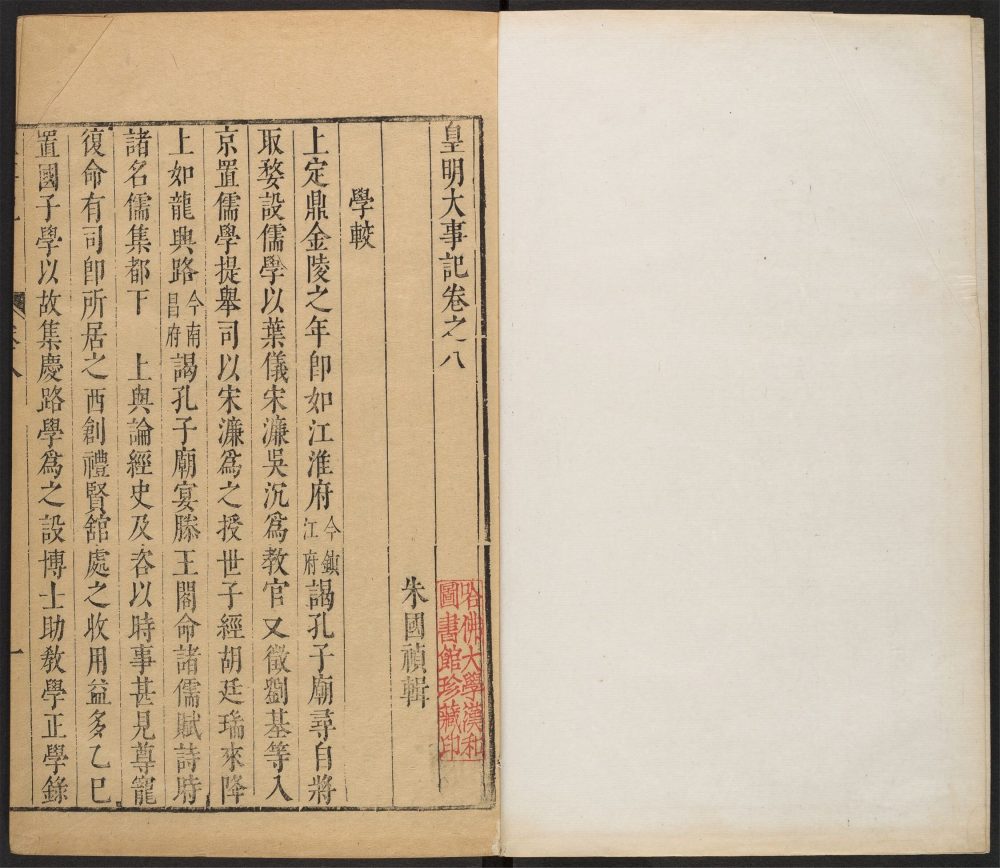 皇明大事記卷之八
哈佛大學漢和
圖書館珍藏印
朱國禎輯
學較
上定鼎金陵之年卽如江淮府今鎮江府謁孔子廟尋自將
取婺設儒學以葉儀宋濂吳沉爲教官又徵劉基等入
京置儒學提舉司以宋濂爲之授世子經胡廷瑞來降
上如龍興路今南昌府謁孔子廟宴滕王閣命諸儒賦詩時
諸名儒集都下　上與論經史及咨以時事甚見尊寵
復命有司卽所居之西創禮賢舘處之收用益多乙巳
置國子學以故集慶路學爲之設博士助教學正學錄